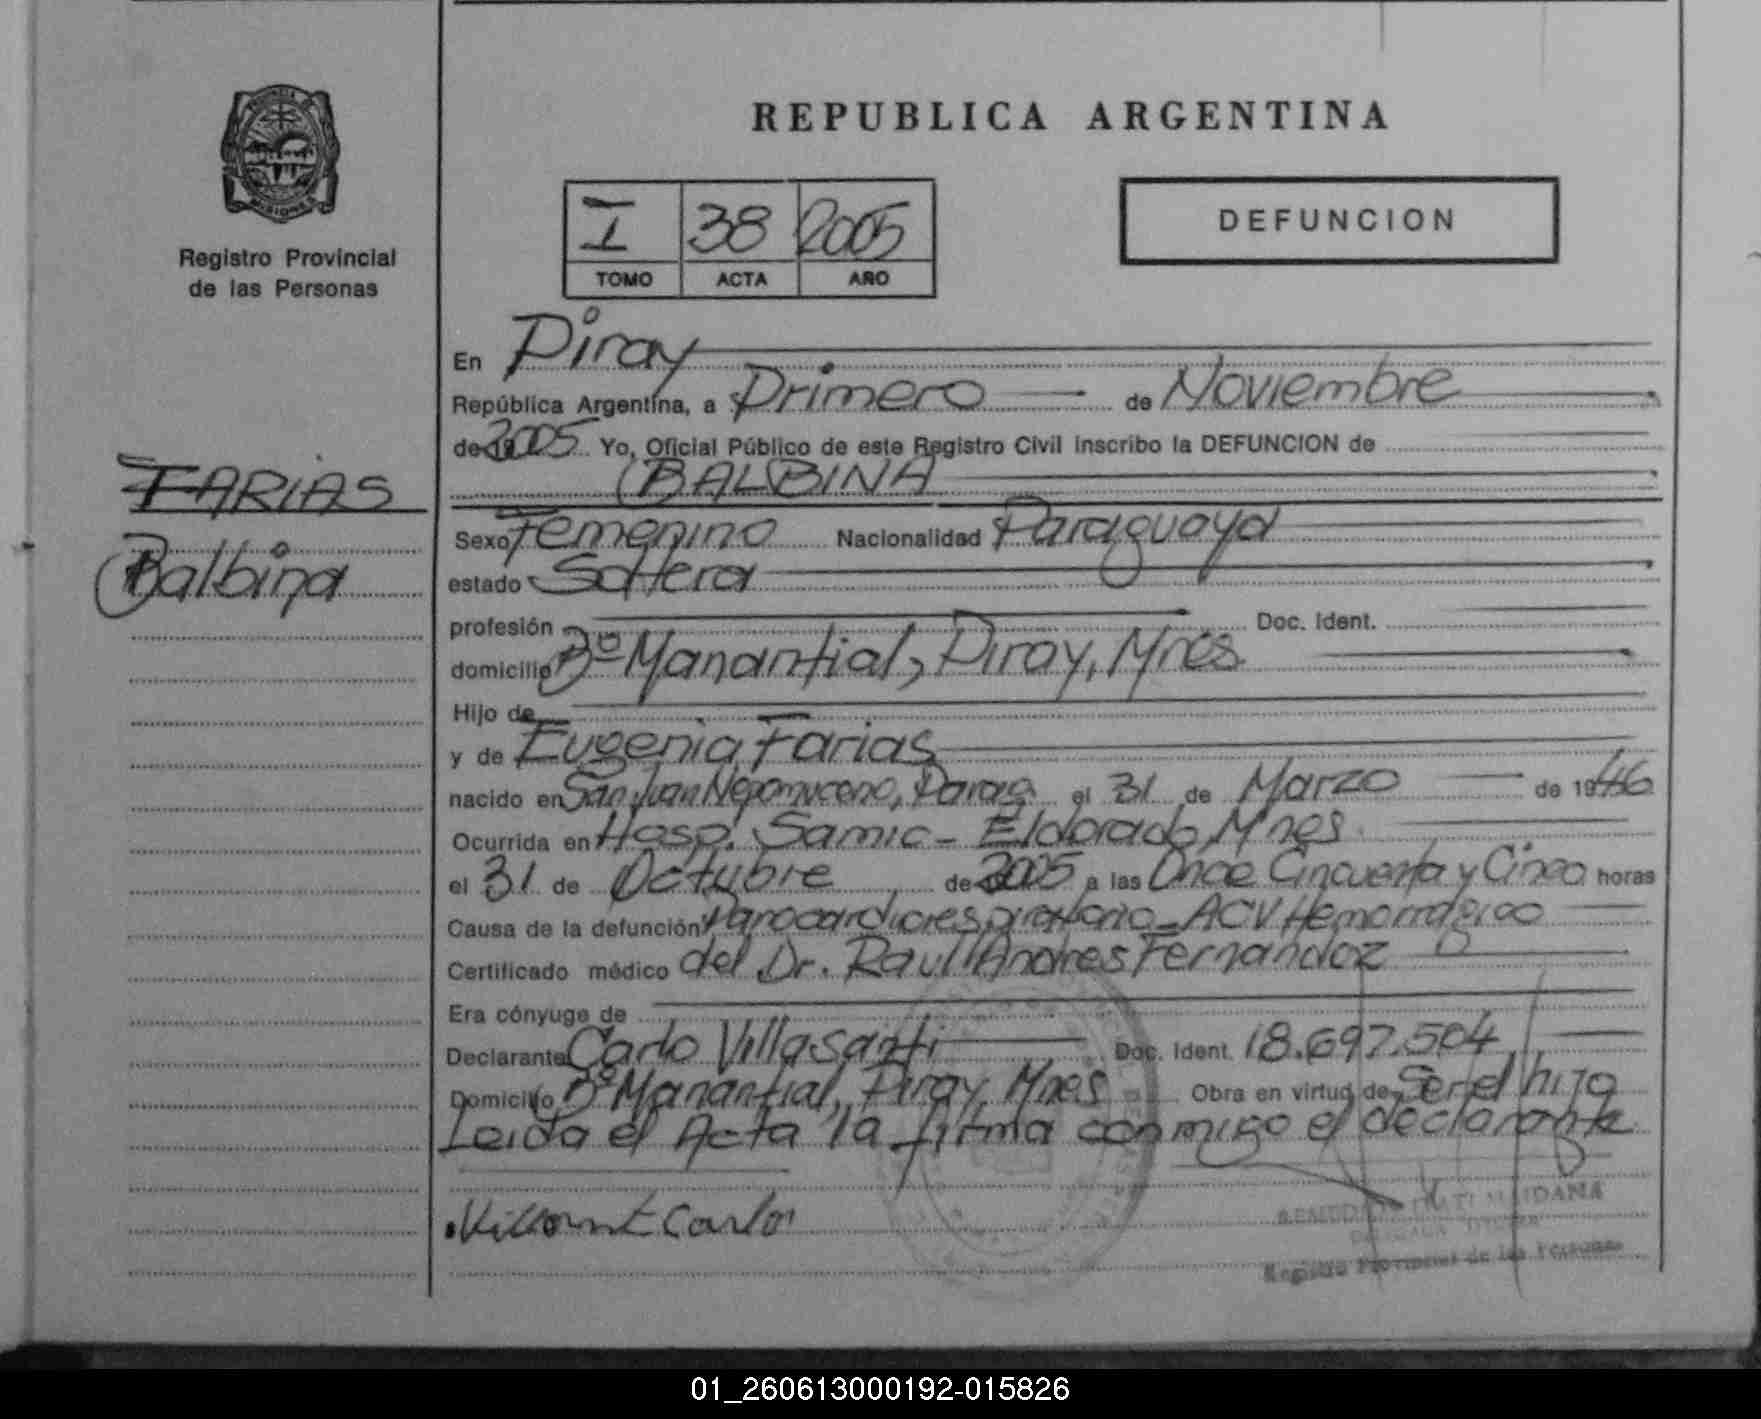 REPUBLICA ARGENTINA
PROVINCIA DE
MISIONES
Registro Provincial
de las Personas
I 38 2005
TOMO ACTA AÑO
DEFUNCION
FARIAS
Balbina
En Piray
República Argentina, a Primero de Noviembre
de 2005 Yo, Oficial Público de este Registro Civil inscribo la DEFUNCION de
BALBINA
Sexo Femenino Nacionalidad Paraguaya
estado Soltera
profesión Doc. Ident.
domicilio Bº Manantial, Piray, Mnes.
Hijo de
y de Eugenia Farias
nacido en San Juan Nepomuceno, Parag. el 31 de Marzo de 1946
Ocurrida en Hosp. Samic - Eldorado, Mnes.
el 31 de Octubre de 2005 a las Once Cincuenta y Cinco horas
Causa de la defunción Parocardiorespiratorio - ACV Hemorragico
Certificado médico del Dr. Raul Andres Fernandez
Era cónyuge de
Declarante Carlo Villasanti Doc. Ident. 18.697.504
Domicilio Bº Manantial, Piray, Mnes Obra en virtud de Ser el hijo
Leida el Acta la firma conmigo el declarante
Carlos
MAIDANA
Registro Provincial de las Personas
01_260613000192-015826